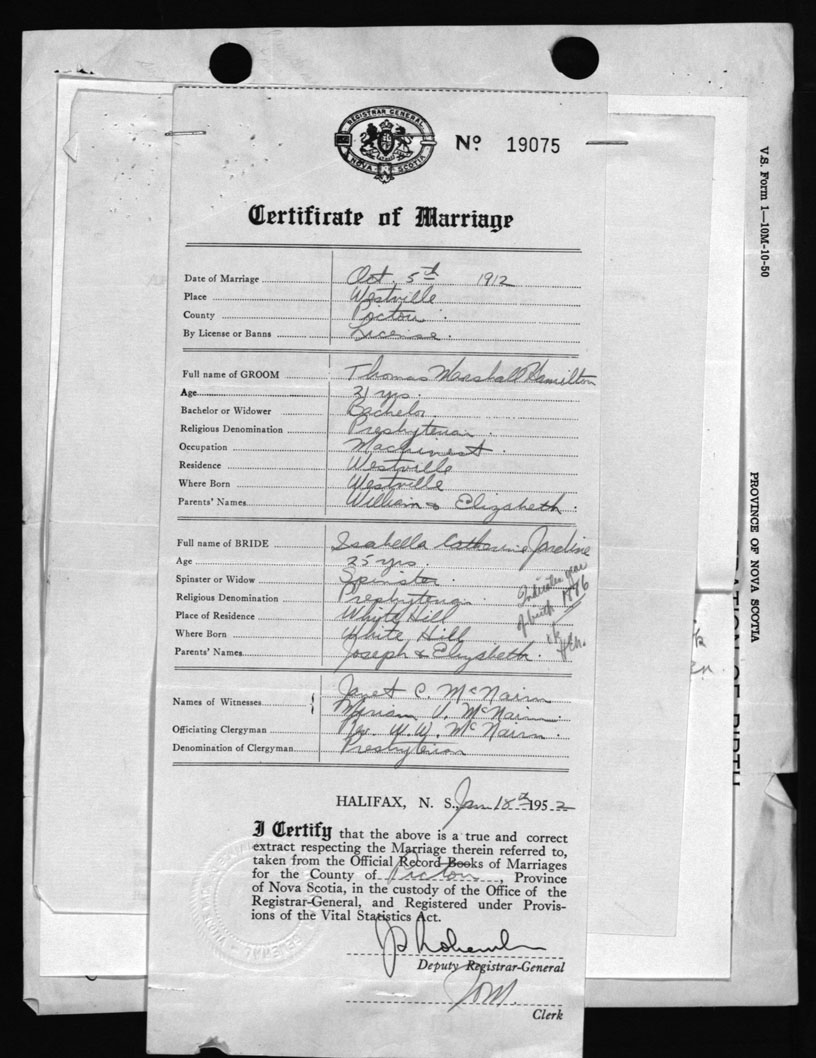 REGISTRAR GENERAL
NOVA SCOTIA
No 19075
Certificate of Marriage
Date of Marriage Oct. 5th 1912
Place Westville
County Pictou
By License or Banns License.
Full name of GROOM Thomas Marshall Hamilton
Age 31 yrs.
Bachelor or Widower Bachelor.
Religious Denomination Presbyterian.
Occupation Machinest.
Residence Westville
Where Born Westville
Parents' Names William & Elizabeth.
Full name of BRIDE Isabella Catherine Jardine
Age 25 yrs.
Spinster or Widow Spinster.
Religious Denomination Presbyterian
Place of Residence White Hill
Where Born White Hill
Parents' Names Joseph & Elizabeth.
Indicates year
of birth 1886
Names of Witnesses Janet C. McNairn
Myriam V. McNairn.
Officiating Clergyman Rev. W. W. McNairn.
Denomination of Clergyman Presbyterian
HALIFAX, N. S., Jan 18th 1952
I Certify that the above is a true and correct
extract respecting the Marriage therein referred to,
taken from the Official Record Books of Marriages
for the County of Pictou, Province
of Nova Scotia, in the custody of the Office of the
Registrar-General, and Registered under Provis-
ions of the Vital Statistics Act.
Deputy Registrar-General
Clerk
V.S. Form 1—10M-10-50
PROVINCE OF NOVA SCOTIA
OF BIRTH